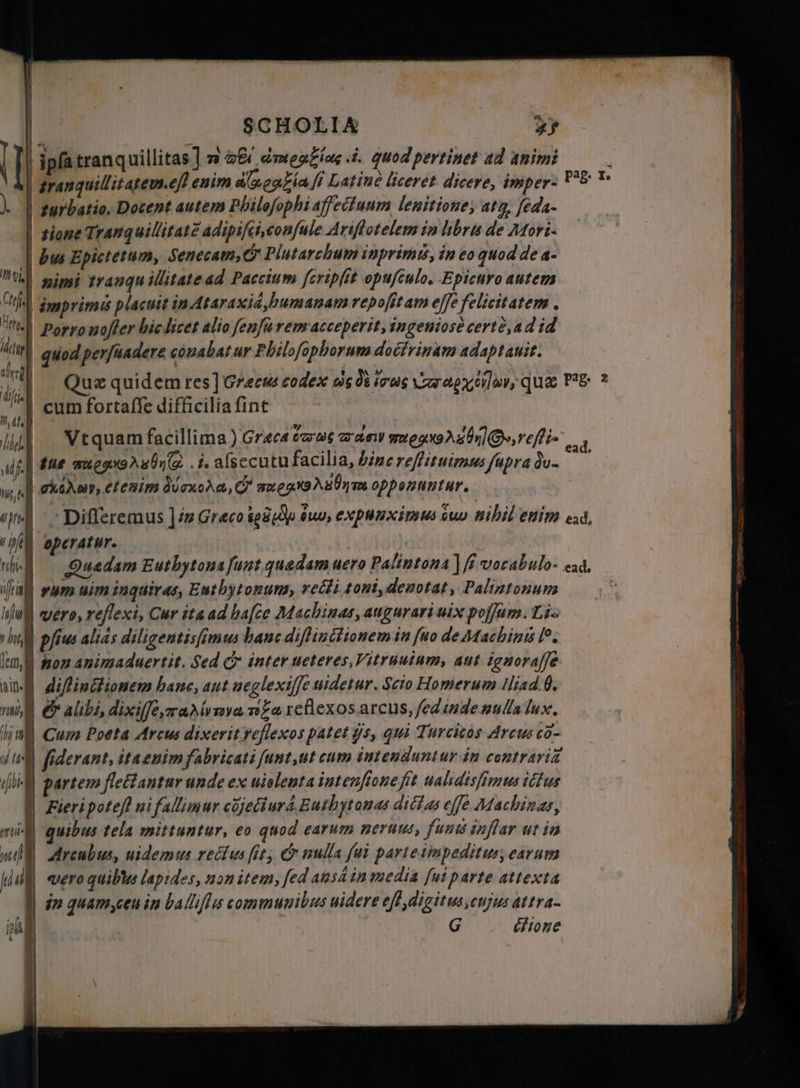 SCHOLIA
ipſa tranquillitas] quod pertinet ad animi
tranquillitatem. eſt enim ſi Latinè liceret dicere, imper- pag. 1.
turbatio. Docent autem Philoſophi affectuum lenitione, atq, ſeda-
tione Tranquillitatē adipiſci, conſule Ariſtotelem in libris de Mori-
bus Epictetum, Senecam, & Plutarchum inprimis, in eo quod de a-
nimi tranquillitate ad Paccium ſcripſit opuſculo. Epicuro autem
imprimis placuit in Ataraxiâ, humanam repoſitam eſſe felicitatem.
Porro noſter hic licet alio ſenſu rem acceperit, ingenioſè certè, ad id
quod perſuadere conabatur Philoſophorum doctrinam adaptauit.
Quæ quidem res] Græcus codex quæ pag. 2
cum fortaſſe difficilia ſint
Vt quam facillima) Græca reſti- ead.
tue .i. aſſecutu facilia, hinc reſtituimus ſupra δυ-
etenim δύσκολα, & opponuntur.
Differemus] in Græco expunximus nihil enim ead.
operatur.
Quædam Euthytona ſunt quædam uero Palintona] ſi vocabulo- ead.
rum uim inquiras, Euthytonum, recti toni, denotat, Palintonum
vero, reflexi, Cur ita ad haſce Machinas, augurari uix poſſum. Li-
pſius aliàs diligentiſſimus hanc diſtinctionem in ſuo de Machinis l°.
non animaduertit. Sed & inter ueteres, Vitruuium, aut ignoraſſe
diſtinctionem hanc, aut neglexiſſe uidetur. Scio Homerum Iliad. θ.
& alibi, dixiſſe, παλίντονα τόξα reflexos arcus, ſed inde nulla lux.
Cum Poeta Arcus dixerit reflexos patet ijs, qui Turcicos Arcus cō-
ſiderant, ita enim fabricati ſunt, ut cum intenduntur in contrariā
partem flectantur unde ex uiolenta intenſione ſit ualidiſſimus ictus
Fieri poteſt ni fallimur cōiecturâ Euthytonas dictas eſſe Machinas,
quibus tela mittuntur, eo quod earum neruus, funis inſtar ut in
Arcubus, uidemus rectus ſit, & nulla ſui parte impeditus, earum
vero quibus lapides, non item, ſed ansâ in media ſui parte attexta
in quam, ceu in balliſtis communibus uidere eſt, digitus, cujus attra-
G ctione